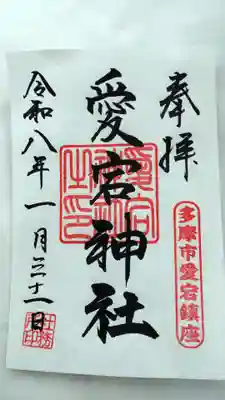 奉拝
多摩市愛宕鎮座
愛宕神社
愛宕神社之印
令和八年一月三十一日